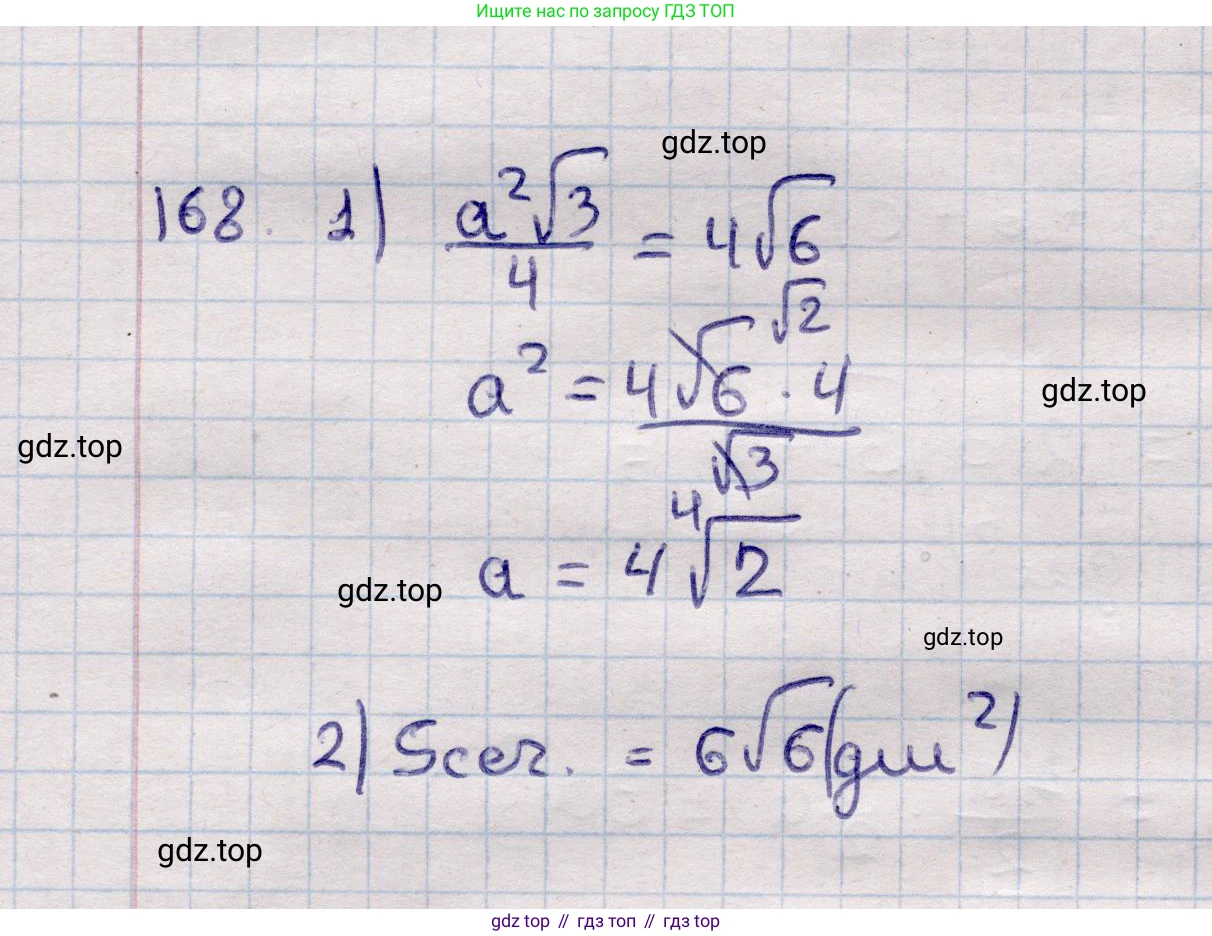 Ищите нас по запросу ГДЗ ТОП
gdz.top
168. 1) a²√3/4 = 4√6
√2
a² = 4√6 · 4/√3
gdz.top
gdz.top
a = 4 ⁴√2
gdz.top
gdz.top
2) Sсеч. = 6√6 (дм²)
gdz.top
gdz top // гдз топ // gdz top